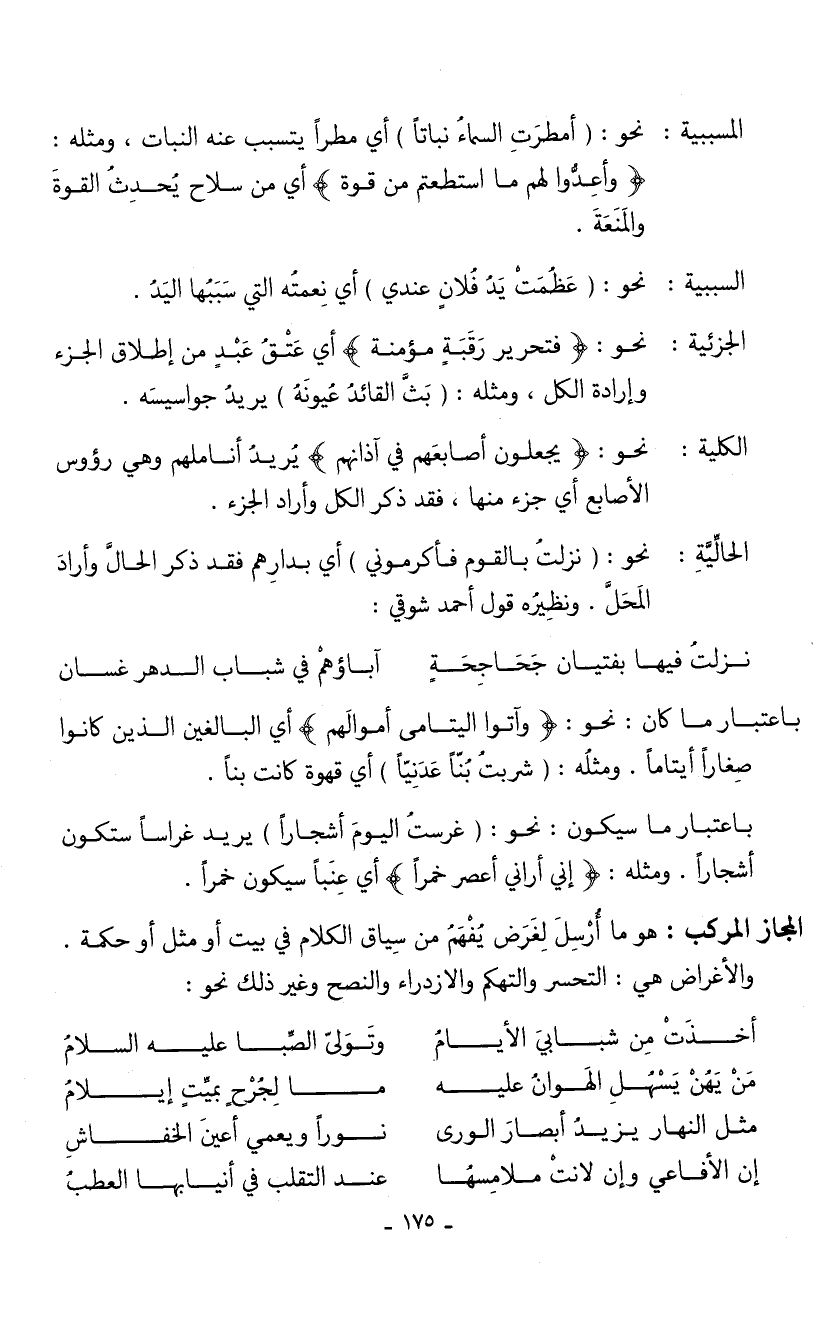 المسببية : نحو : ( أمطرَتِ السماءُ نباتاً ) أي مطراً يتسبب عنه النبات ، ومثله :
﴿ وأعِدُّوا لهم ما استطعتم من قوة ﴾ أي من سلاح يُحدِثُ القوةَ
والمَنَعَةَ .
السببية : نحو : ( عَظُمَتْ يَدُ فُلانٍ عندي ) أي نِعمتُه التي سَبَبُها اليَدُ .
الجزئية : نحو : ﴿ فتحرير رَقَبَةٍ مؤمنة ﴾ أي عَتْقُ عَبْدٍ من إطلاق الجزء
وإرادة الكل ، ومثله : ( بَثَّ القائدُ عُيونَهُ ) يريدُ جواسيسَه .
الكلية : نحو : ﴿ يجعلون أصابعَهم في آذانهم ﴾ يُريدُ أناملهم وهي رؤوس
الأصابع أي جزء منها ، فقد ذكر الكل وأراد الجزء .
الحالِّيَّة : نحو : ( نزلتُ بالقوم فأكرموني ) أي بدارِهم فقد ذكر الحالَّ وأرادَ
المَحَلَّ . ونظيرُه قول أحمد شوقي :
نزلتُ فيها بفتيان جَحَاجِحَةٍ آباؤهمْ في شباب الدهر غسان
باعتبار ما كان : نحو : ﴿ وآتوا اليتامى أموالَهم ﴾ أي البالغين الذين كانوا
صِغاراً أيتاماً . ومثلُه : ( شربتُ بُنّاً عَدَنِيّاً ) أي قهوة كانت بناً .
باعتبار ما سيكون : نحو : ( غرستُ اليومَ أشجاراً ) يريد غراساً ستكون
أشجاراً . ومثله : ﴿ إني أراني أعصر خمراً ﴾ أي عِنَباً سيكون خمراً .
المجاز المركب : هو ما أُرْسِلَ لِغَرَض يُفْهَمُ من سِياق الكلام في بيت أو مثل أو حكمة .
والأغراض هي : التحسر والتهكم والازدراء والنصح وغير ذلك نحو :
أخذَتْ مِن شبابيَ الأيامُ وتَوَلىّ الصِّبا عليه السلامُ
مَنْ يَهُنْ يَسْهُلِ الهَوانُ عليه ما لِجُرْحٍ بميِّتٍ إيلامُ
مثل النهار يزيدُ أبصارَ الورى نوراً ويعمي أعينَ الخفاشِ
إن الأفاعي وإن لانتْ ملامسُها عند التقلب في أنيابها العطبُ
- ١٧٥ -